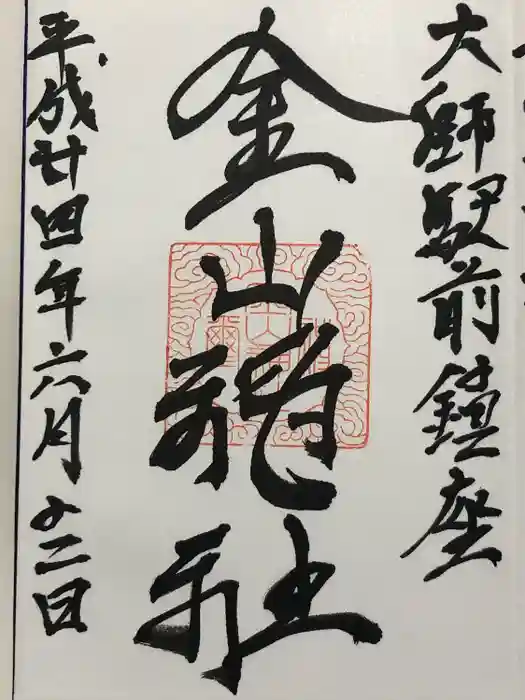 大師駅前鎮座
金山神社
平成廿四年六月十二日